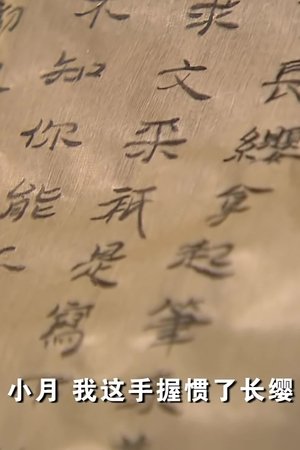 長纓拿起筆
求文采祇是寫
不知你能
小月 我这手握惯了长缨